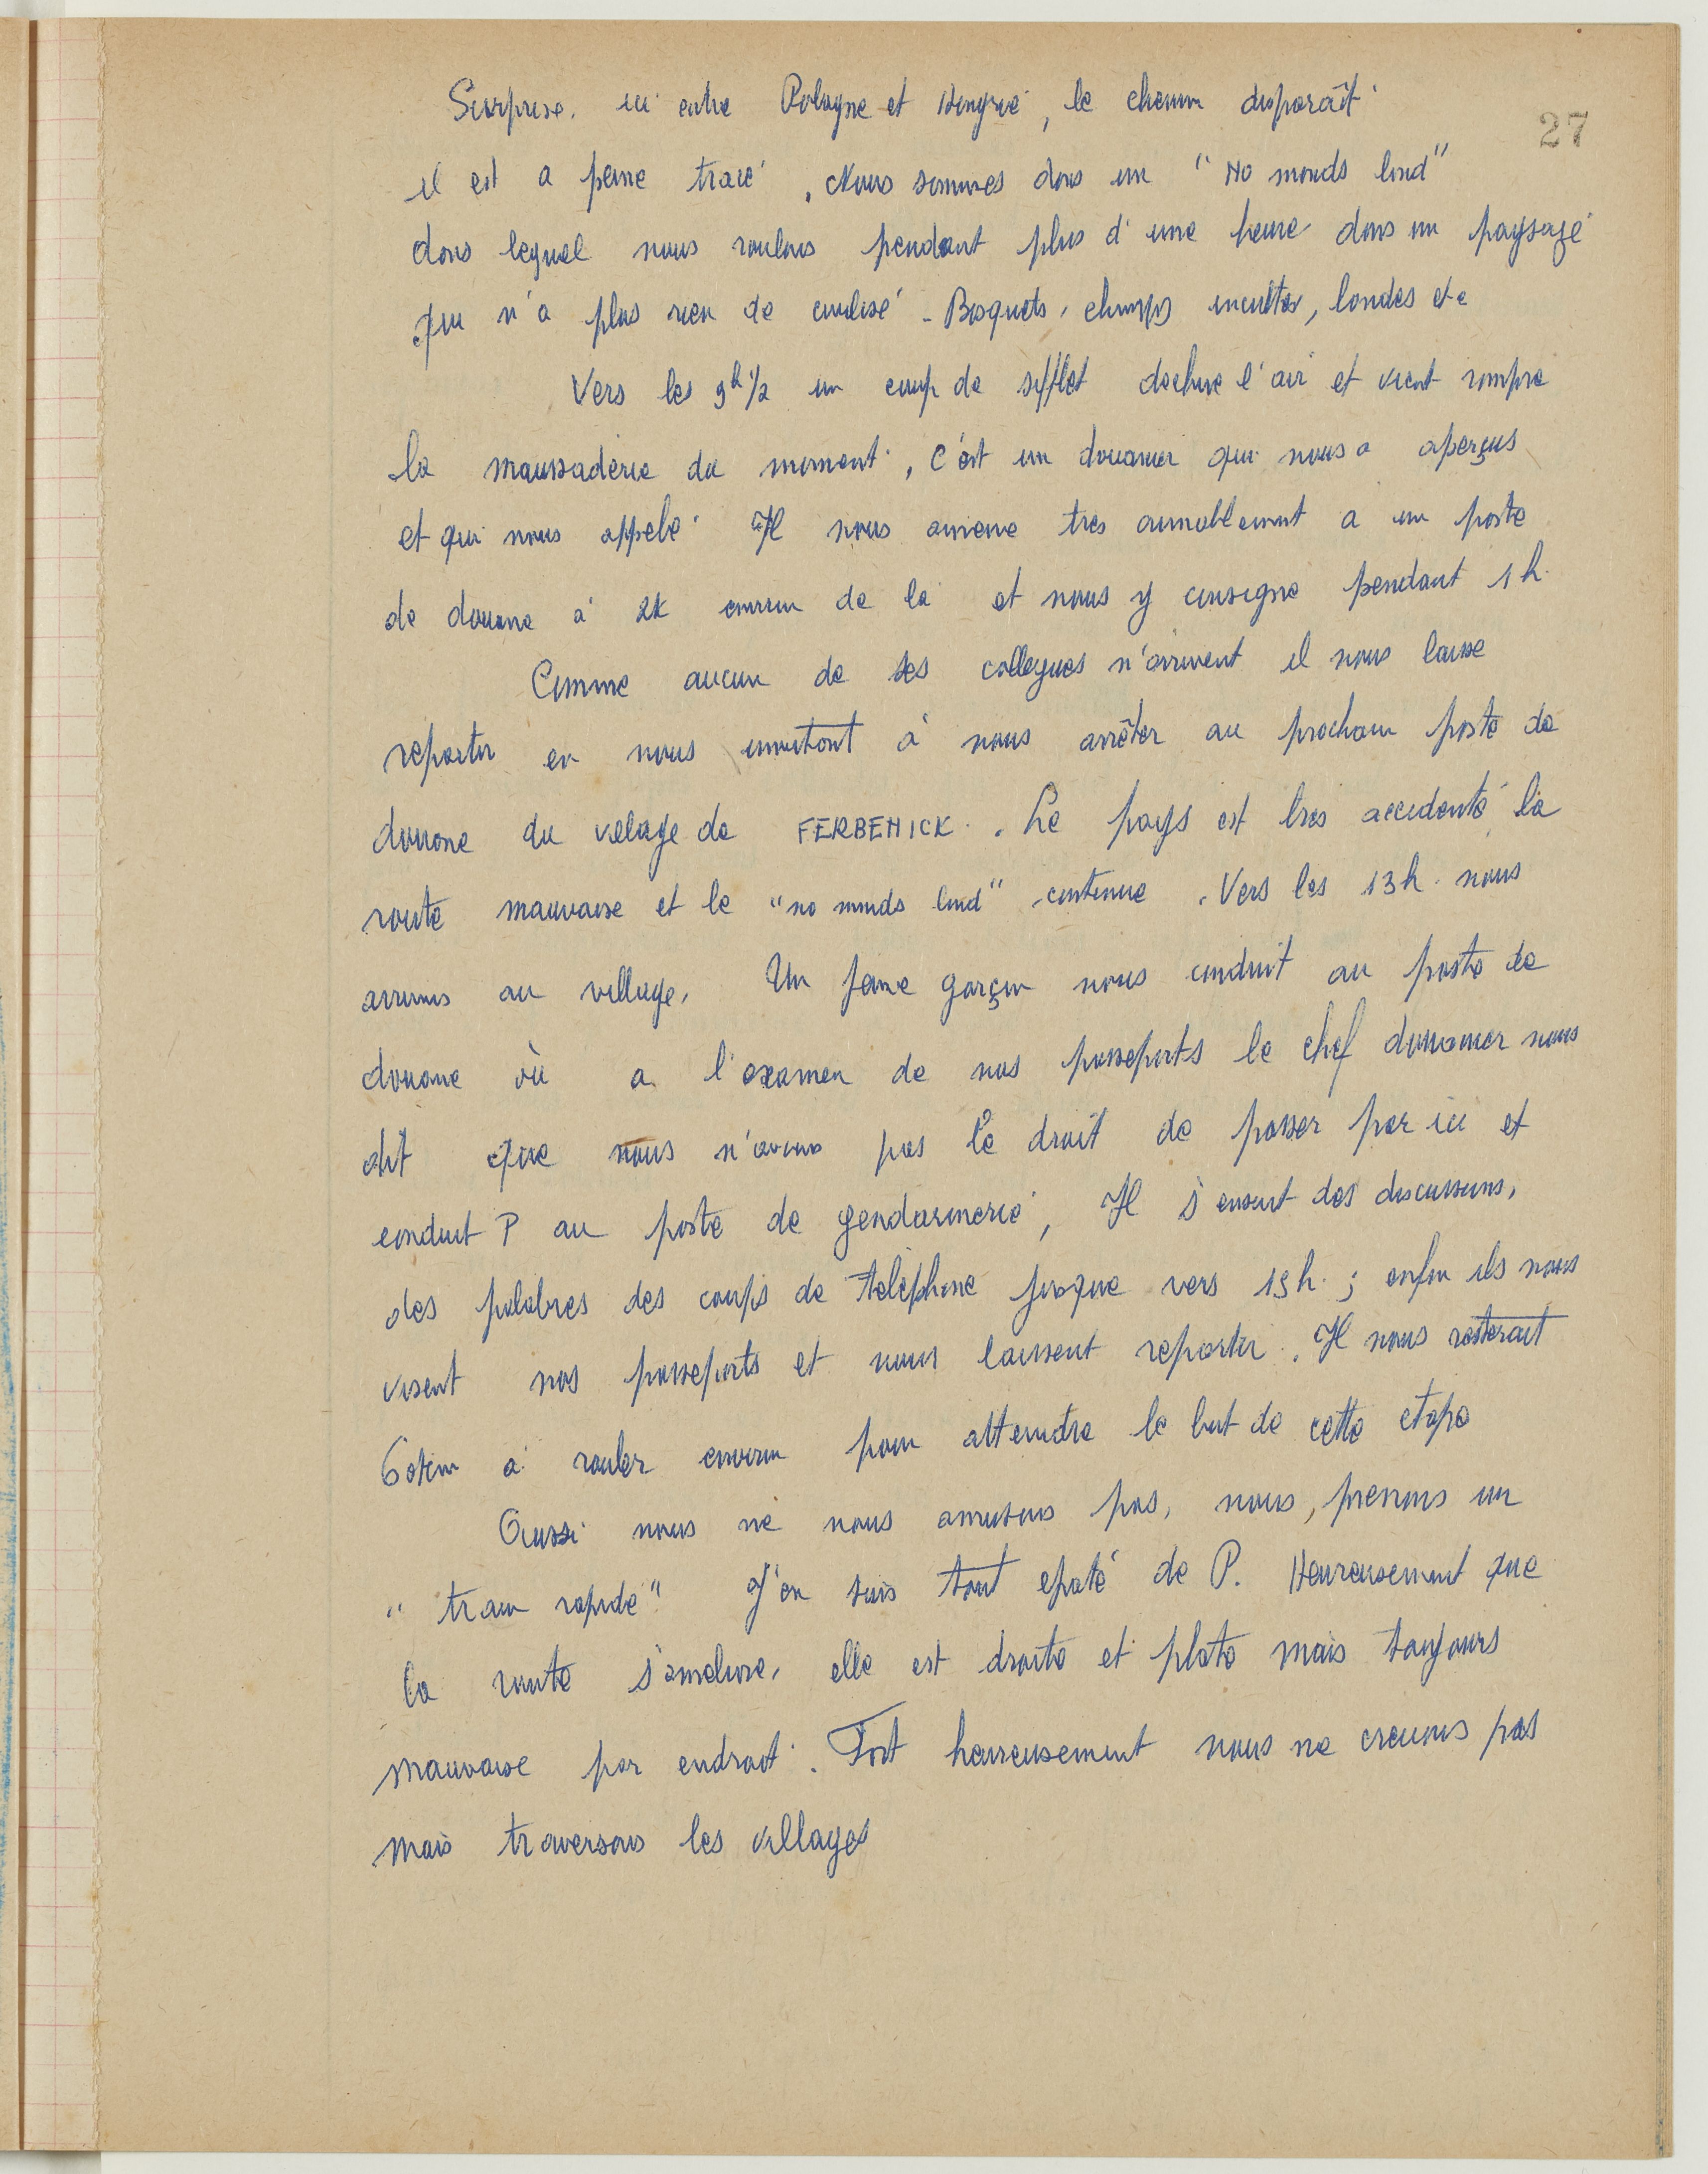 27
Surprise. ici entre Pologne et Hongrie, le chemin disparaît.
il est a peine tracé. Nous sommes dans un "No mands land"
dans lequel nous roulons pendant plus d'une heure dans un paysage
qui n'a plus rien de civilisé - Bosquets, champs incultes, landes etc
Vers les 9h 1/2 un coup de sifflet dechire l'air et vient rompre
la maussaderie du moment, c'est un douanier qui nous a aperçus
et qui nous appele. Il nous amene tres aimablement a un poste
de douane à 2K environ de là et nous y consigne pendant 1h.
Comme aucun de ses collegues n'arrivent il nous laisse
repartir en nous invitant à nous arrêter au prochain poste de
douane du village de FERBENICK. Le pays est tres accidenté la
route mauvaise et le "no mands land" continue. Vers les 13h. nous
arrivons au village. Un jeune garçon nous conduit au poste de
douane où a l'examen de nos passeports le chef douanier nous
dit que nous n'avons pas le droit de passer par ici et
conduit P au poste de gendarmerie, Il s'ensuit des discussions,
des palabres des coups de téléphone jusque vers 15h.; enfin ils nous
visent nos passeports et nous laissent repartir. Il nous resterait
60 km à rouler environ pour atteindre le but de cette etape
Aussi nous ne nous amusons pas, nous, prenons un
"train rapide" J'en suis tout epaté de P. Heureusement que
la route s'ameliore, elle est droite et plate mais toujours
mauvaise par endroit. Fort heureusement nous ne crevons pas
mais traversons les villages